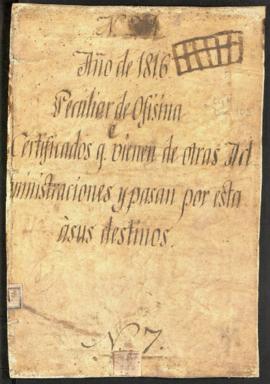 Año de 1816
Peculiar de Ofisina
Certificados q. vienen de otras Ad
ministraciones y pasan por esta
àsus destinos.
N. 7.